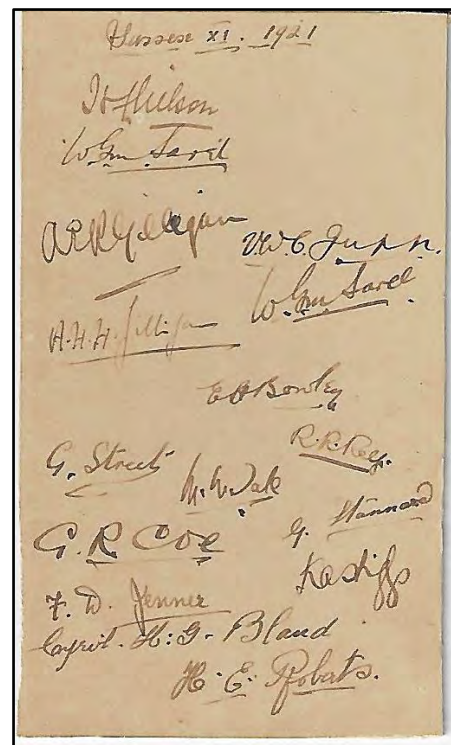 Sussex XI. 1921
Wilson
W.Gm Sarel
AER Gilligan
V.W.C. Jupp.
A.H.H. Gilligan
W.Gm Sarel
E H Bowley
R.R. Relf.
G. Street
M.W. Tate
G. Stannard
G R COE
KA Higgs
F. D. Jenner
Cyril. H. G. Bland
H. E. Roberts.